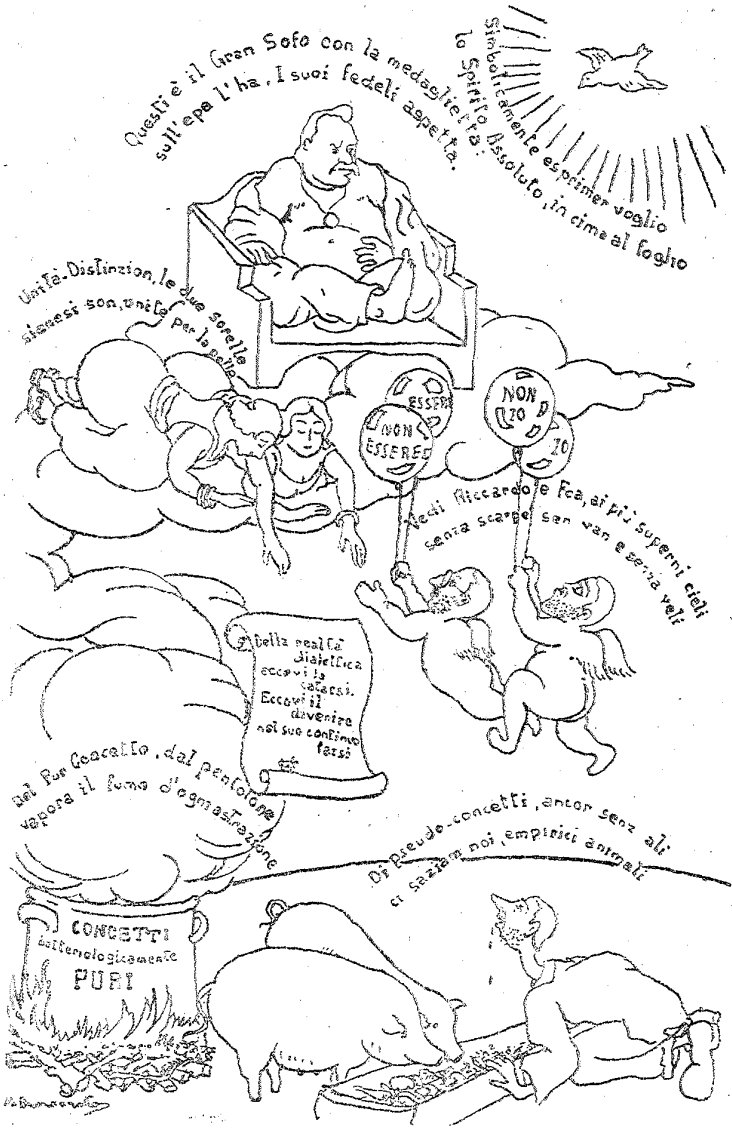 Questi è il Gran Sofo con la medaglietta:
sull'epa l'ha. I suoi fedeli aspetta.
Simbolicamente esprimer voglio
lo Spirito Assoluto, in cima al foglio
Unità-Distinzion, le due sorelle
siamesi son, unite per la pelle
ESSERE
NON
ESSERE
NON
IO
IO
Vedi Riccardo e Fca, ai più superni cieli
senza scarpe sen van e senza veli
Della realtà
dialettica
eccovi la
catarsi.
Eccovi il
divenire
nel suo continuo
farsi
Del Pur Concetto, dal pentolone
vapora il fumo d'ogniastrazione
Di pseudo-concetti, ancor senz ali
ci saziam noi, empirici animali
CONCETTI
PURI